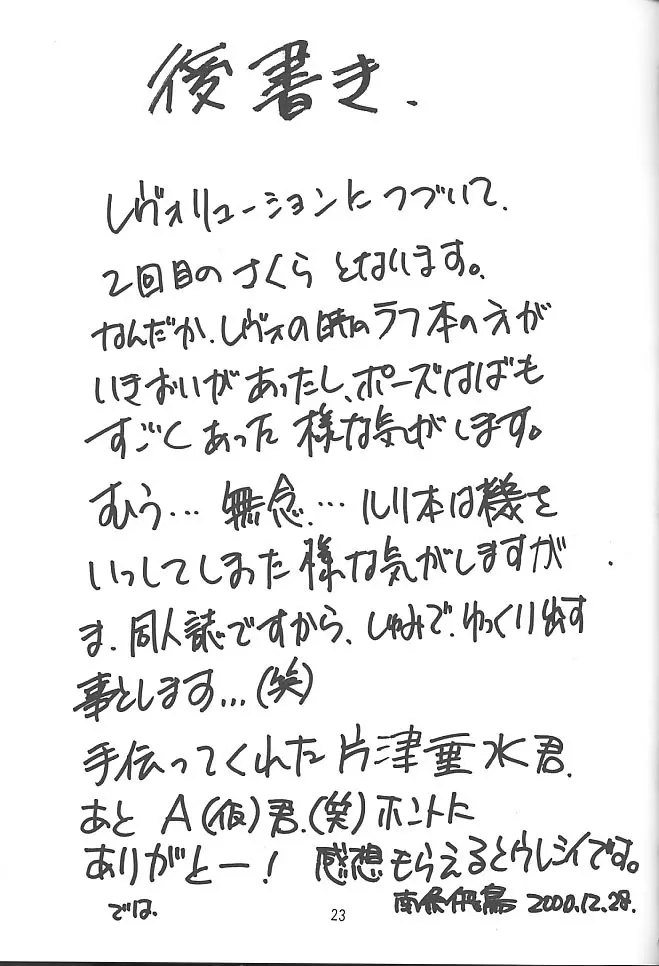 後書き.
レヴォリューションにつづいて.
2回目のさくらとないます。
なんだか、レヴォの時のラフ本の方が
いきおいがあったし、ポーズはばも
すごくあった様な気がします。
むぅ… 無念.… ルリ本は機を
いっしてしまった様な気がしますが
ま、同人誌ですから、しゅみで、ゆっくり出す
事とします…(笑)
手伝ってくれた片津垂水君.
あと A(仮)君.(笑)ホントに
ありがとー! 感想もらえるとウレシイです。
では. 2000.12.28.
23